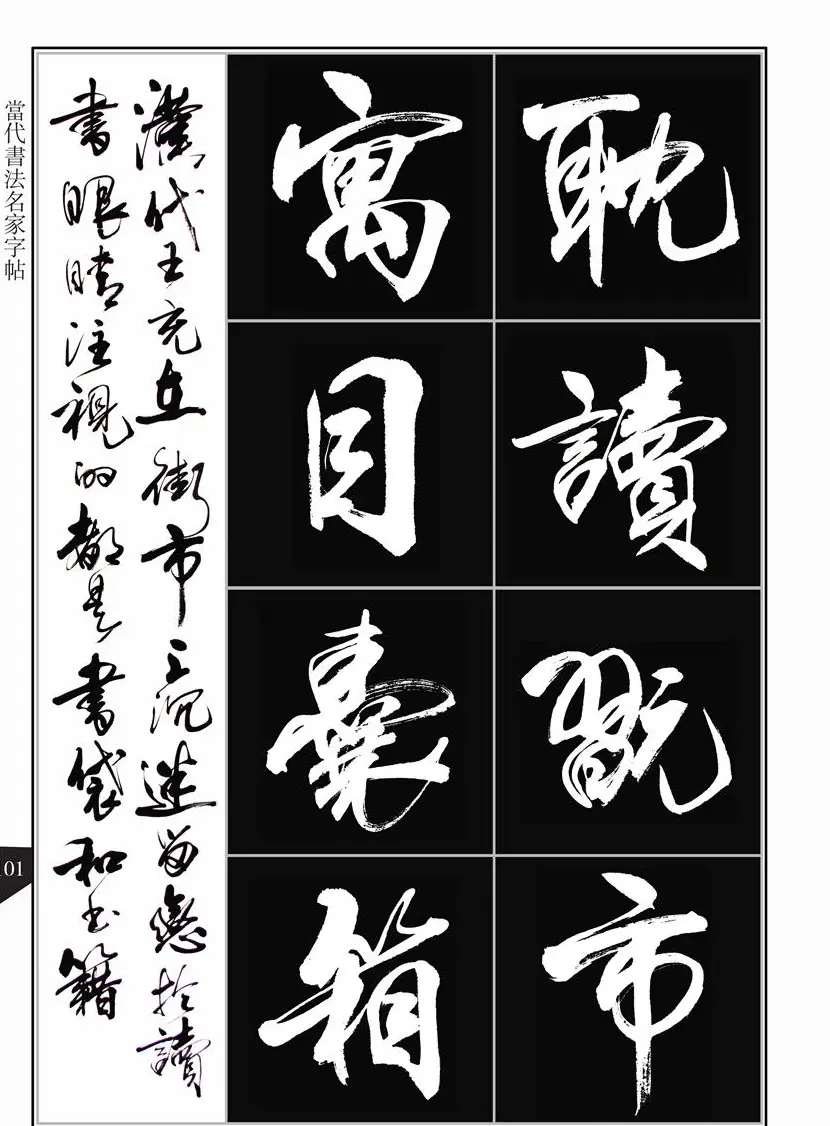 耽讀翫市
寓目囊箱
漢代王充在街市上沉迷留戀於讀
書眼睛注視的都是書袋和书籍
當代書法名家字帖
101